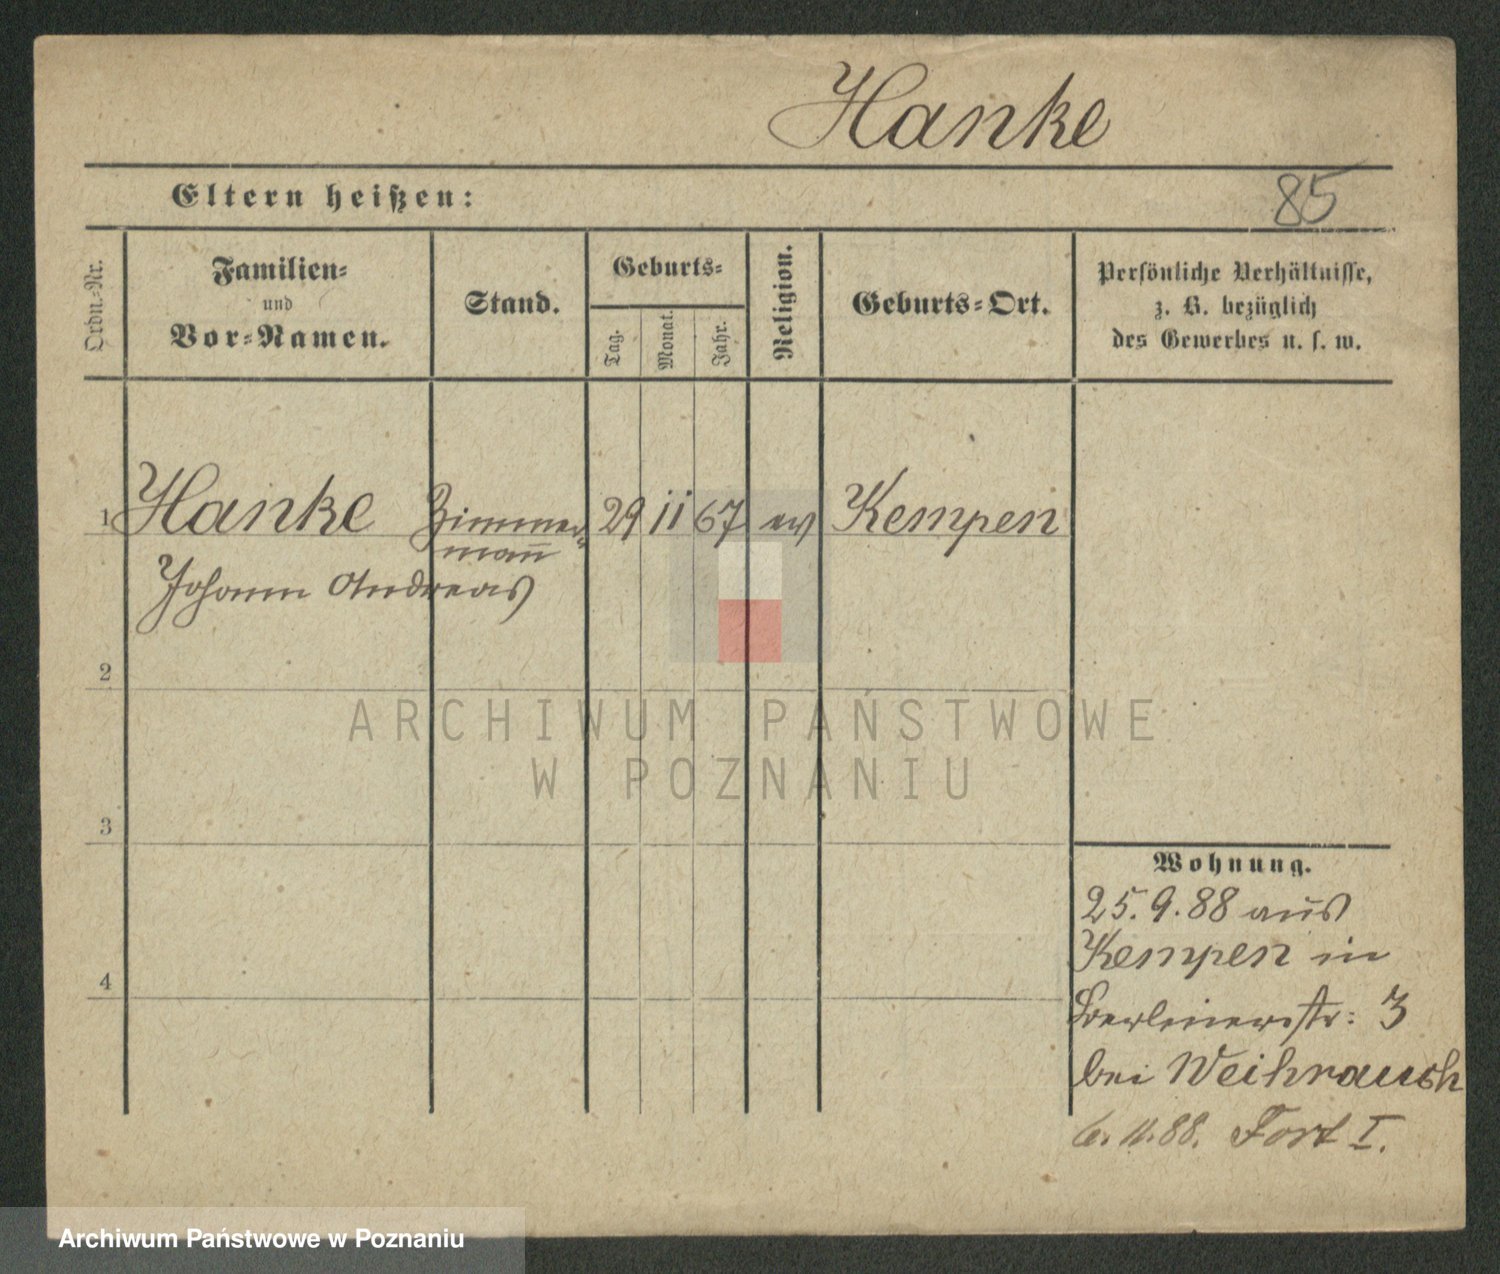 Hanke
Eltern heißen:
85
Ordn.-Nr.
Familien-
und
Vor-Namen.
Stand.
Geburts-
Tag.
Monat.
Jahr.
Religion.
Geburts-Ort.
Persönliche Verhältnisse,
z. B. bezüglich
des Gewerbes u. s. w.
1 Hanke Zimmer- 29 11 67 ev Kempen
mann
Johann Andreas
2
ARCHIWUM PAŃSTWOWE
W POZNANIU
3
Wohnung.
25. 9. 88 aus
Kempen in
4
Berlinerstr: 3
bei Weihrauch
6. 11. 88. Fort I.
Archiwum Państwowe w Poznaniu